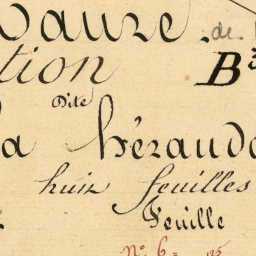 de
tion B
Dite
la héraude
huit feuilles
Feuille
N° 6